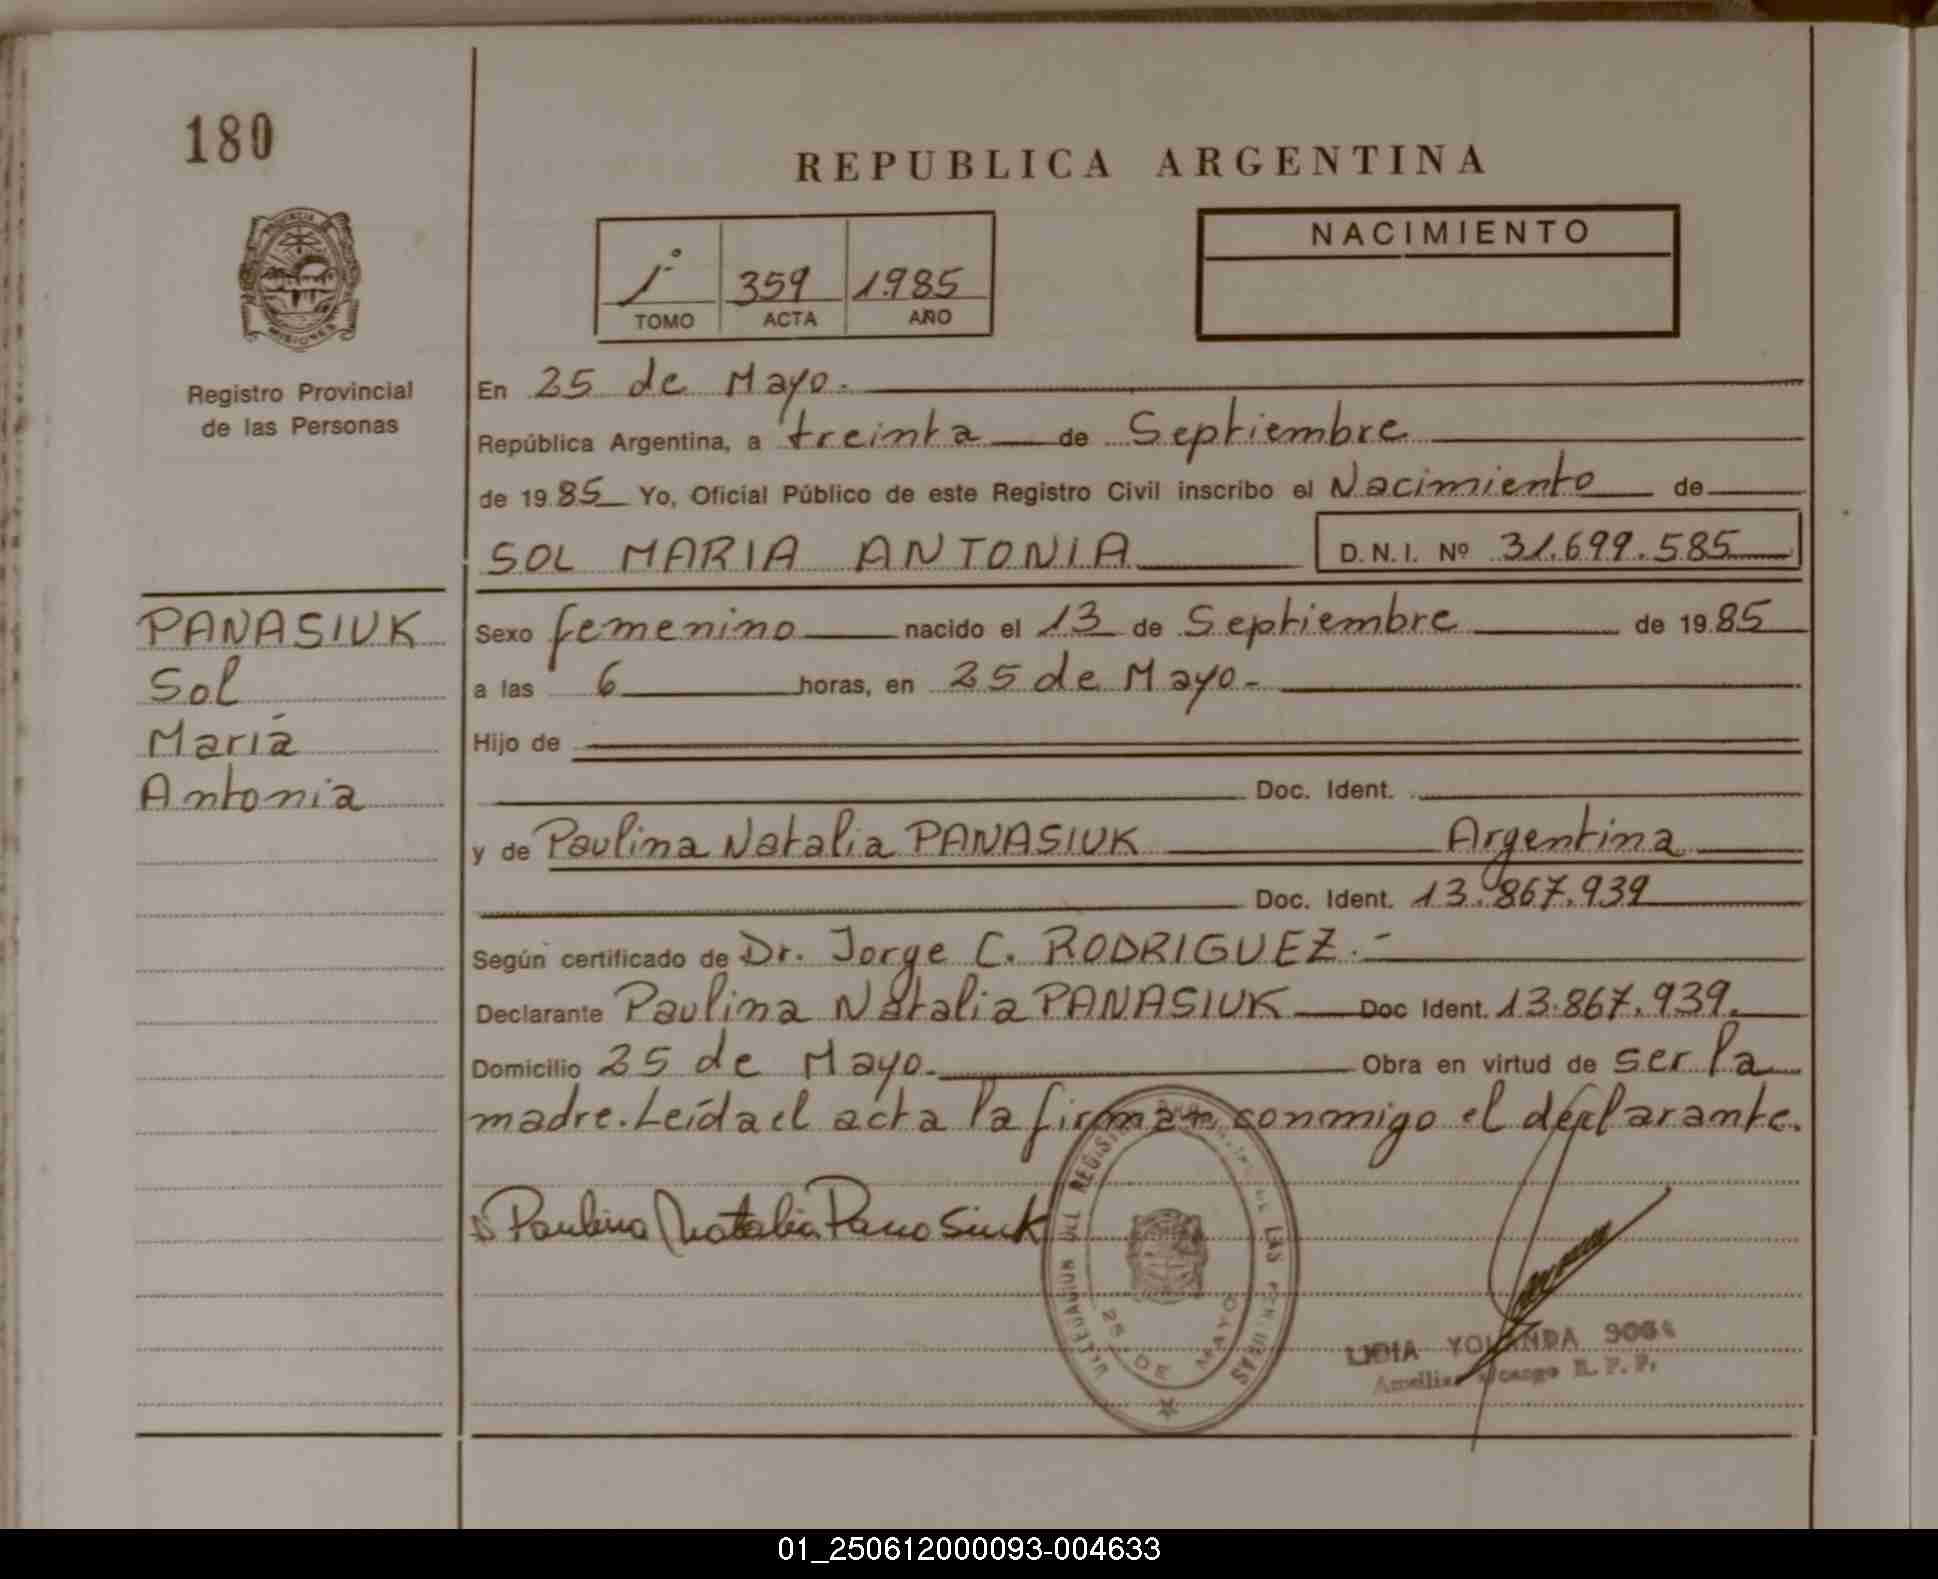 180
REPUBLICA ARGENTINA
PROVINCIA
MISIONES
Registro Provincial
de las Personas
1º 359 1985
TOMO ACTA AÑO
NACIMIENTO
En 25 de Mayo.
República Argentina, a treinta de Septiembre
de 1985 Yo, Oficial Público de este Registro Civil inscribo el Nacimiento de
SOL MARIA ANTONIA D.N.I. Nº 31.699.585
PANASIUK
Sol
María
Antonia
Sexo femenino nacido el 13 de Septiembre de 1985
a las 6 horas, en 25 de Mayo-
Hijo de
Doc. Ident.
y de Paulina Natalia PANASIUK Argentina
Doc. Ident. 13.867.939
Según certificado de Dr. Jorge C. RODRIGUEZ.-
Declarante Paulina Natalia PANASIUK Doc Ident. 13.867.939.
Domicilio 25 de Mayo. Obra en virtud de ser la
madre. Leída el acta la firman conmigo el declarante.
Paulina Natalia Panasiuk
25 DE MAYO
LIDIA YOLANDA
R. P. P.
01_250612000093-004633